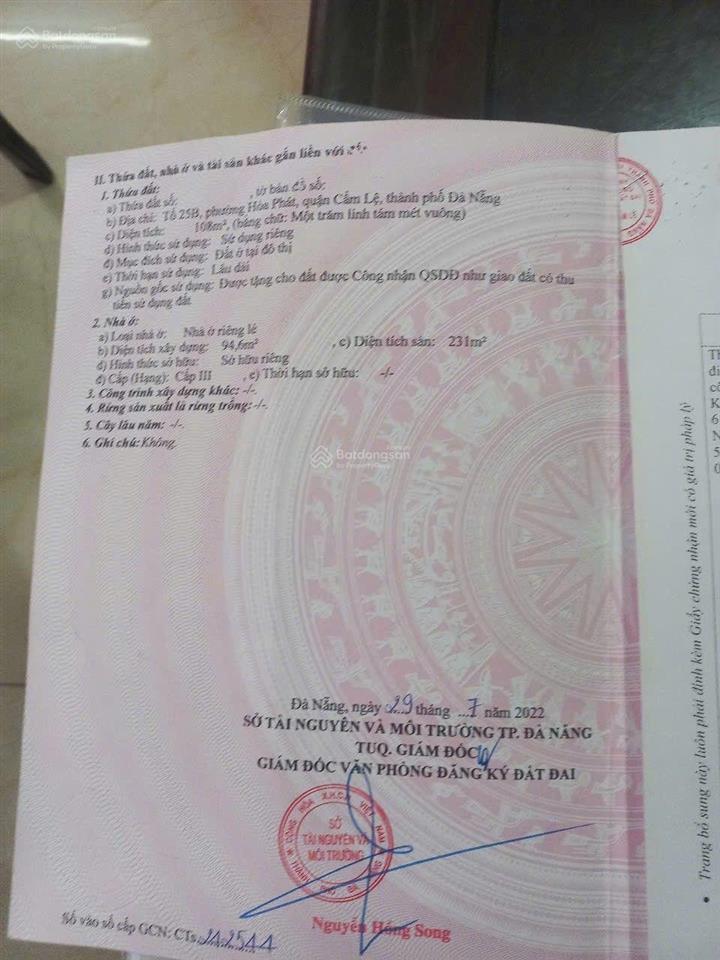 Batdongsan
by PropertyGuru
II. Thửa đất, nhà ở và tài sản khác gắn liền với đất
1. Thửa đất:
a) Thửa đất số: , tờ bản đồ số:
b) Địa chỉ: Tổ 25B, phường Hòa Phát, quận Cẩm Lệ, thành phố Đà Nẵng
c) Diện tích: 108m², (bằng chữ: Một trăm linh tám mét vuông)
d) Hình thức sử dụng: Sử dụng riêng
đ) Mục đích sử dụng: Đất ở tại đô thị
e) Thời hạn sử dụng: Lâu dài
g) Nguồn gốc sử dụng: Được tặng cho đất được Công nhận QSDĐ như giao đất có thu
tiền sử dụng đất
2. Nhà ở:
a) Loại nhà ở: Nhà ở riêng lẻ
b) Diện tích xây dựng: 94,6m² , c) Diện tích sàn: 231m²
d) Hình thức sở hữu: Sở hữu riêng
đ) Cấp (Hạng): Cấp III , e) Thời hạn sở hữu: -/-
3. Công trình xây dựng khác: -/-
4. Rừng sản xuất là rừng trồng:-/-
5. Cây lâu năm: -/-
6. Ghi chú: Không.
Batdongsan
by PropertyGuru
Đà Nẵng, ngày 29 tháng 7 năm 2022
SỞ TÀI NGUYÊN VÀ MÔI TRƯỜNG TP. ĐÀ NẴNG
TUQ. GIÁM ĐỐC
GIÁM ĐỐC VĂN PHÒNG ĐĂNG KÝ ĐẤT ĐAI
CỘNG HÒA X.H.C.N VIỆT NAM
SỞ
TÀI NGUYÊN VÀ
MÔI TRƯỜNG
Nguyễn Hồng Song
Số vào sổ cấp GCN: CTs 242544
Trang bổ sung này luôn phải đính kèm Giấy chứng nhận mới có giá trị pháp lý